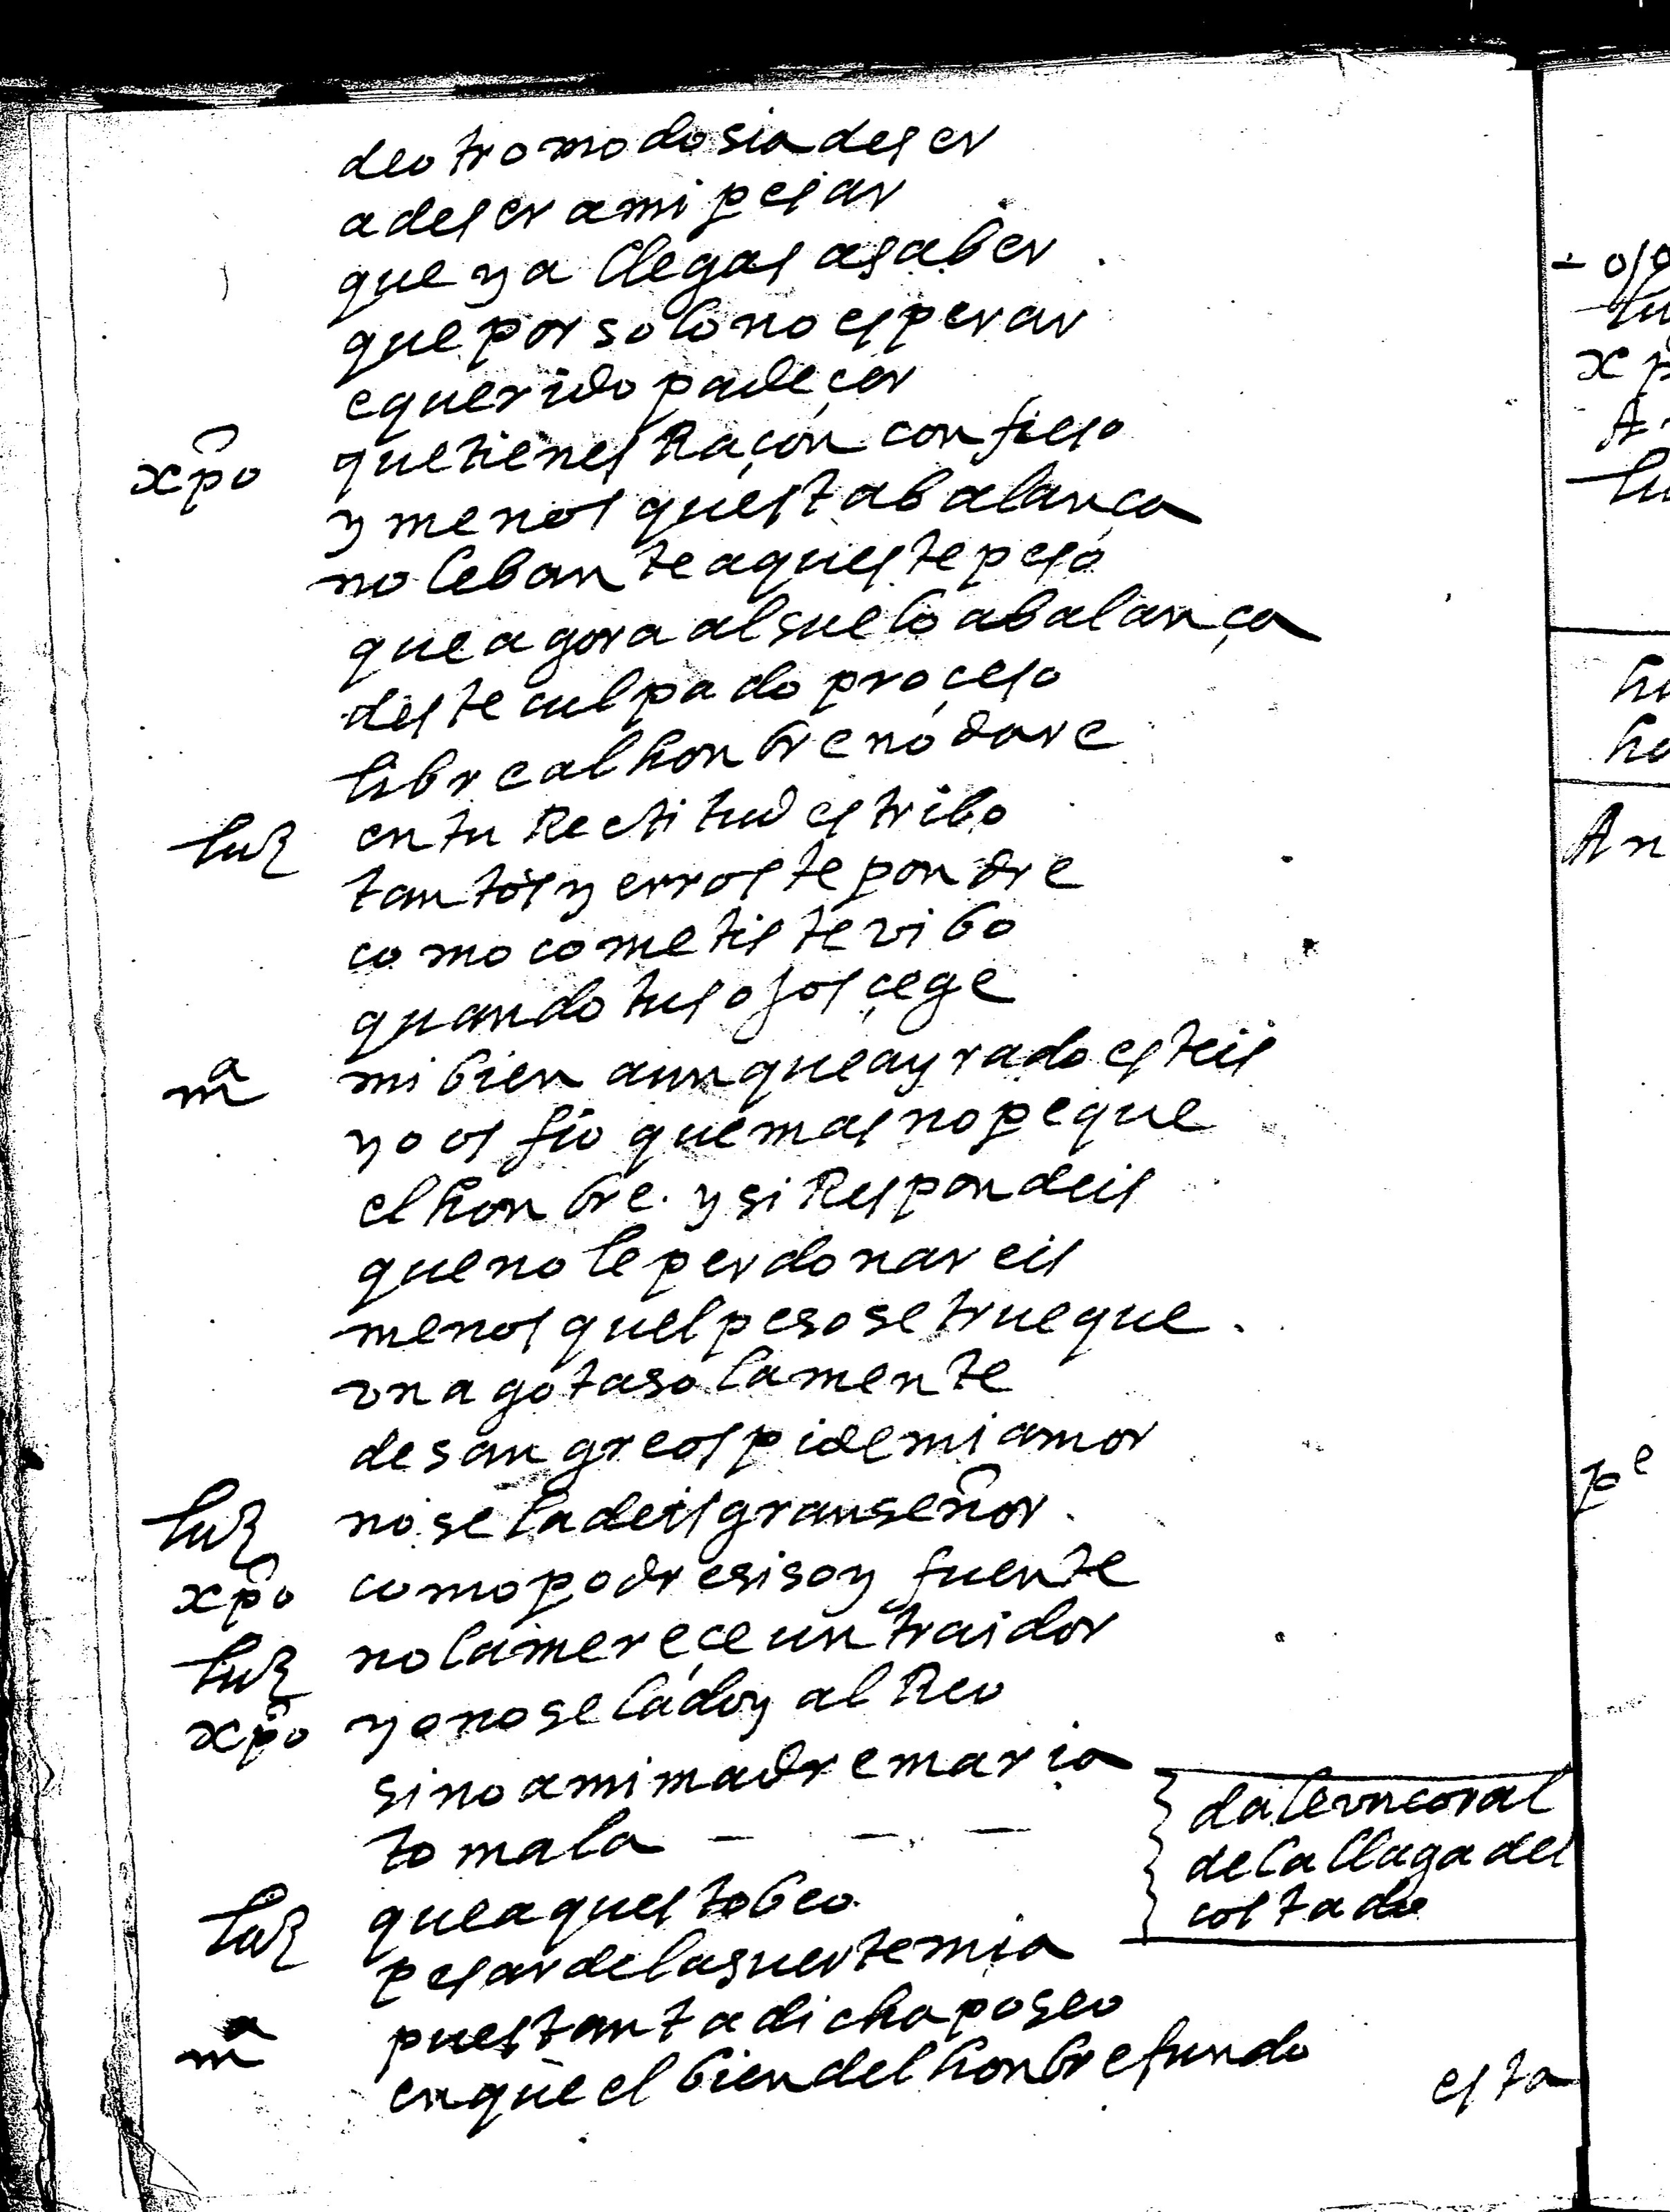 de otro modo si a de ser
a de ser a mi pesar
que ya llegas a saber
que por solo no esperar
e querido padeçer
xpo que tienes Raçon confieso
y menos questa balança
no lebante aqueste peso
que agora al suelo abalança
deste culpado proçeso
libre al honbre no dare
luz en tu Rectitud estribo
tantos yerros te pondre
como cometiste vibo
quando tus ojos çege
mª mi bien aunque ayrado esteis
yo os fio que mas no peque
el honbre. y si Respondeis
que no le perdonareis
menos quel peso se trueque.
vna gota solamente
de sangre os pide mi amor
luz no se la deis gran señor.
xpo como podre si soy fuente
luz no la mereçe un traidor
xpo yo no se la doy al Reo
sino a mi madre maria
tomala - - - dale vn coral
de la llaga del
costado
luz que aquesto beo
pesar de la suerte mia
mª pues tanta dicha poseo
en que el bien del honbre fundo
esta